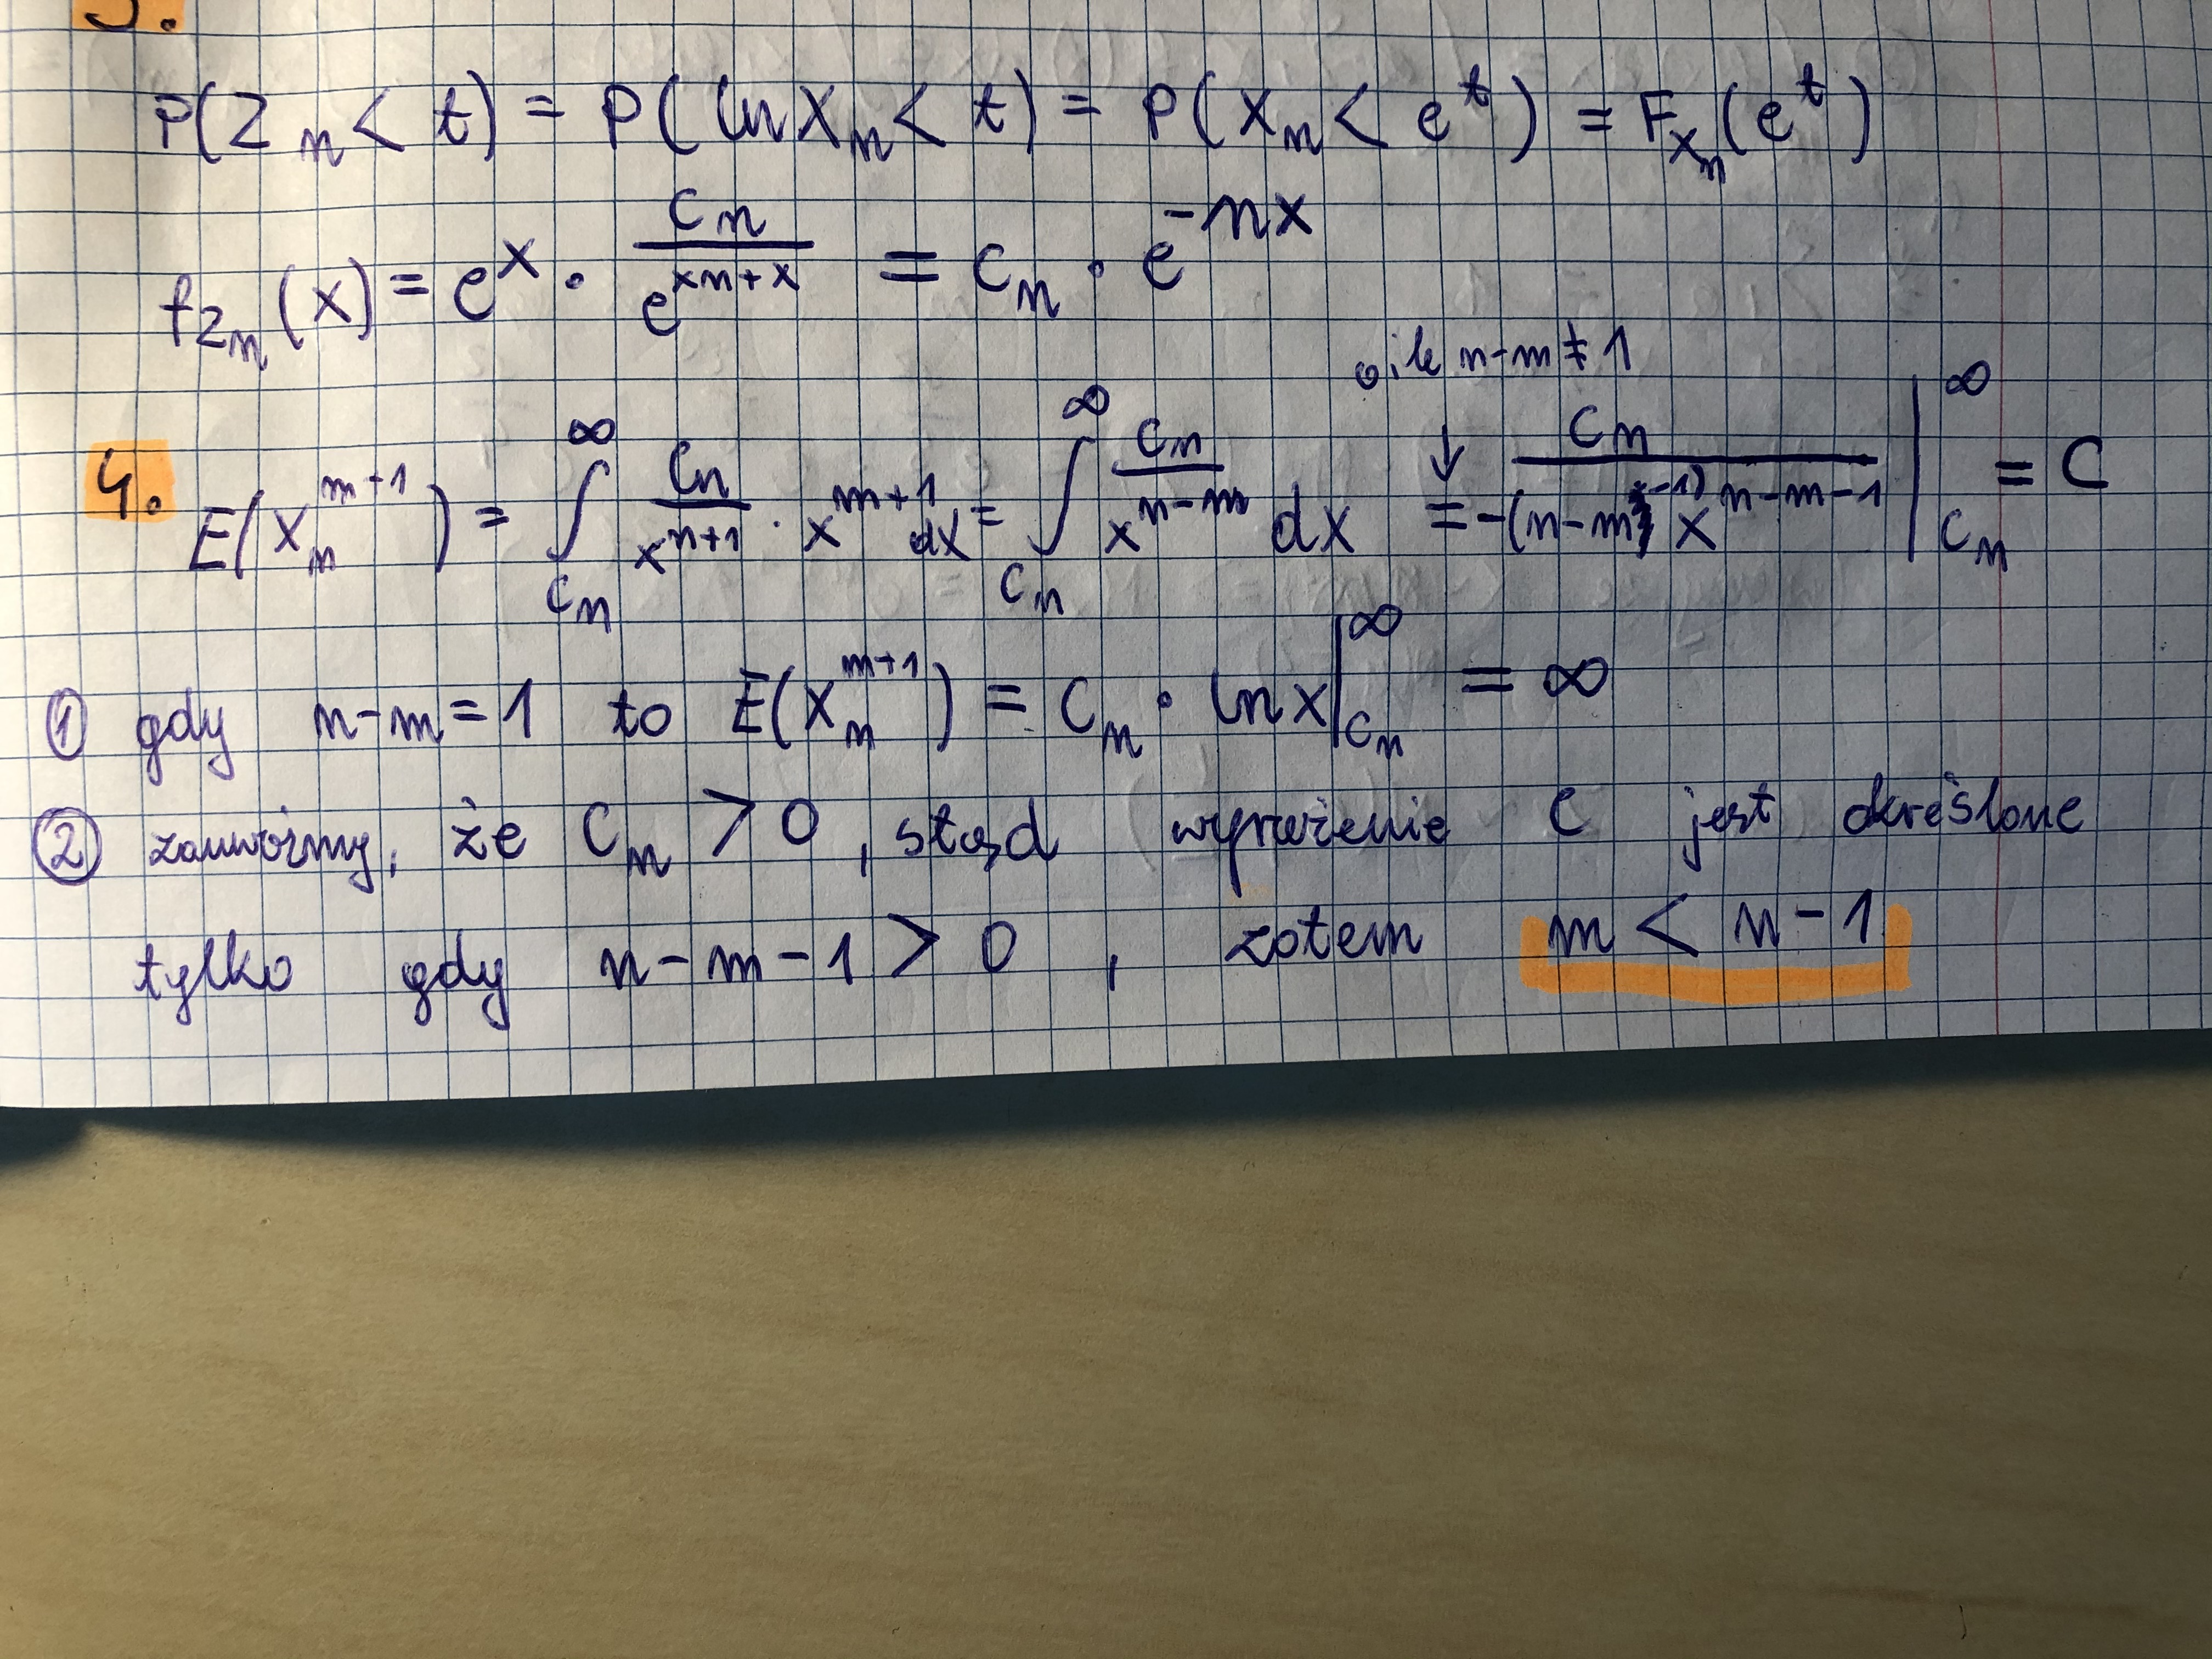 3.
P(Z_n < t) = P(ln X_n < t) = P(X_n < e^t) = F_{X_n}(e^t)
f_{Z_n}(x) = e^x · \frac{c_n}{e^{xn+x}} = c_n · e^{-nx}
o ile n-m ≠ 1
4. E(X_n^{m+1}) = ∫_{c_n}^{∞} \frac{c_n}{x^{n+1}} · x^{m+1} dx = ∫_{c_n}^{∞} \frac{c_n}{x^{n-m}} dx ↓= \frac{c_n}{-(n-m-1) x^{n-m-1}} |_{c_n}^{∞} = C
① gdy n-m = 1 to E(X_n^{m+1}) = c_n · ln x |_{c_n}^{∞} = ∞
② zauważmy, że c_n > 0, stąd wyrażenie C jest określone
tylko gdy n-m-1 > 0, zatem m < n-1